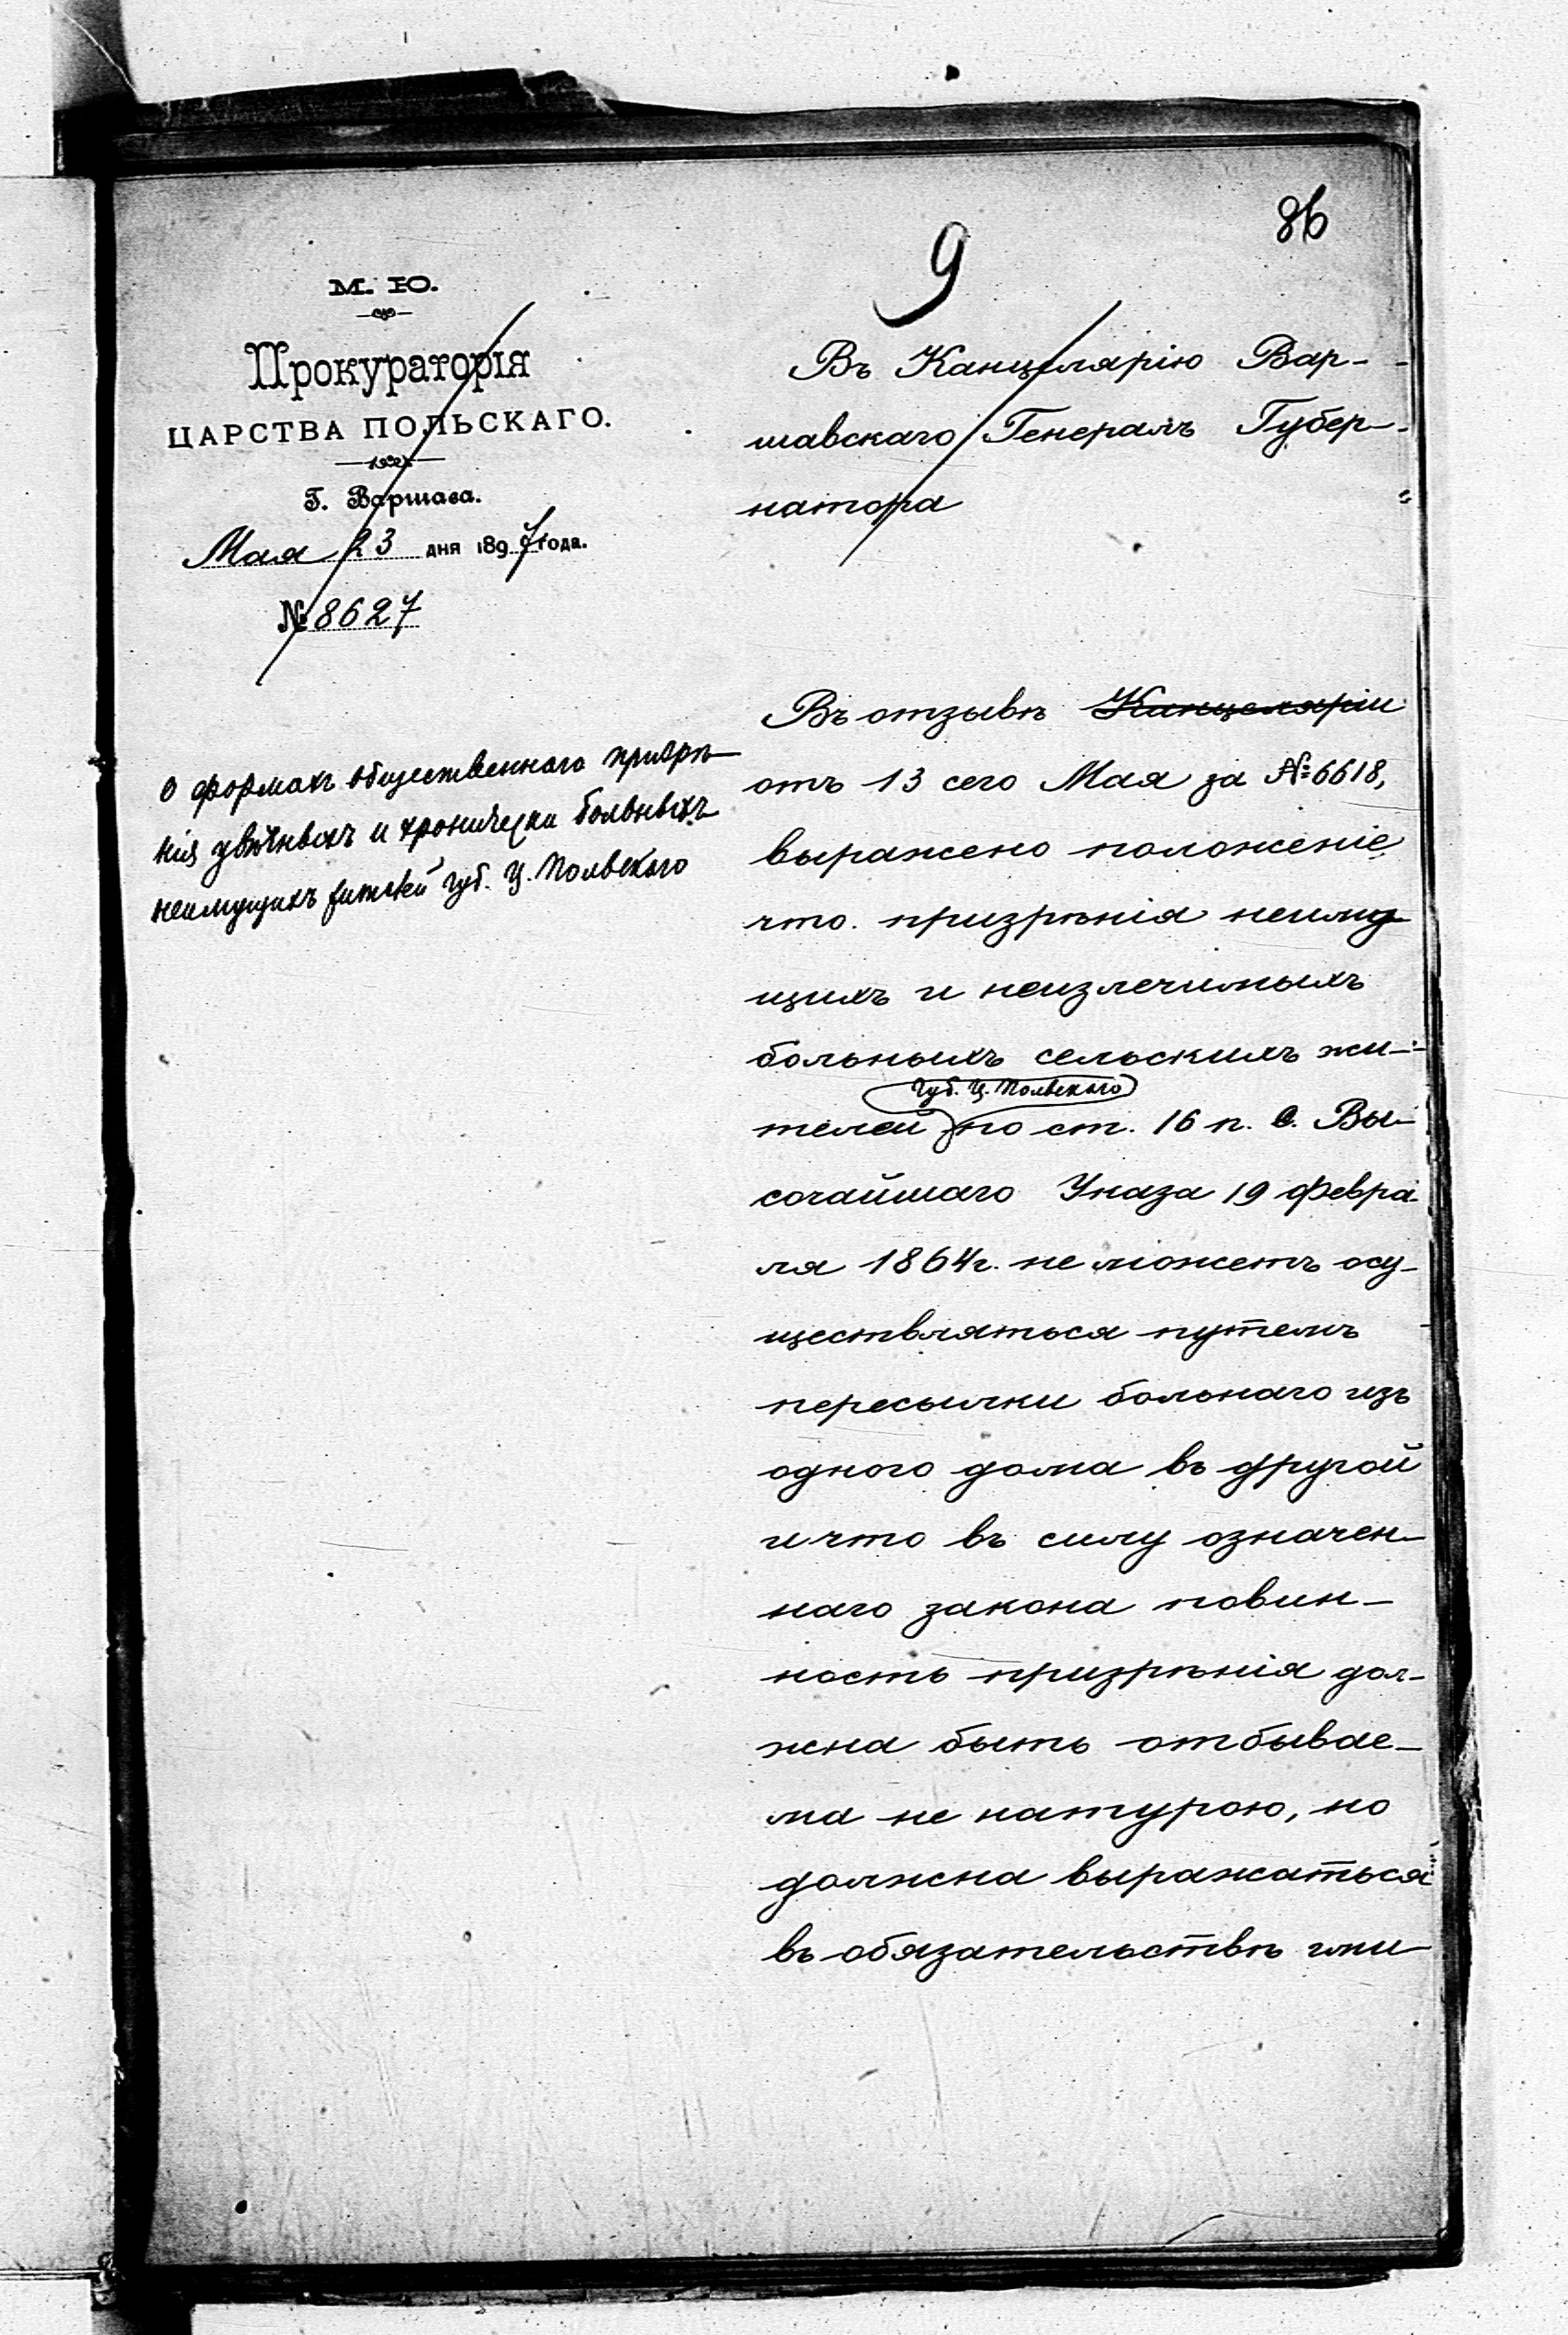 86
9
М. Ю.
Прокураторія
ЦАРСТВА ПОЛЬСКАГО.
Г. Варшава.
Мая 23 дня 1897 года.
№ 8627
О формахъ общественнаго призрѣ-
нія увѣчныхъ и хронически больныхъ
неимущихъ жителей губ. Ц. Польскаго
Въ Канцелярію Вар-
шавскаго Генералъ Губер-
натора
Въ отзывѣ Канцеляріи
отъ 13 сего Мая за №6618,
выражено положеніе
что призрѣнія неиму
щихъ и неизлечимыхъ
больныхъ сельскихъ жи-
Губ. Ц. Польскаго
телей по ст. 16 п. е. Вы-
сочайшаго Указа 19 Февра-
ля 1864 г. не можетъ осу-
ществляться путемъ
пересылки больнаго изъ
одного дома въ другой
и что въ силу означен-
наго закона повин-
ность призрѣнія дол-
жна быть отбывае-
ма не натурою, но
должна выражаться
въ обязательствѣ гми-